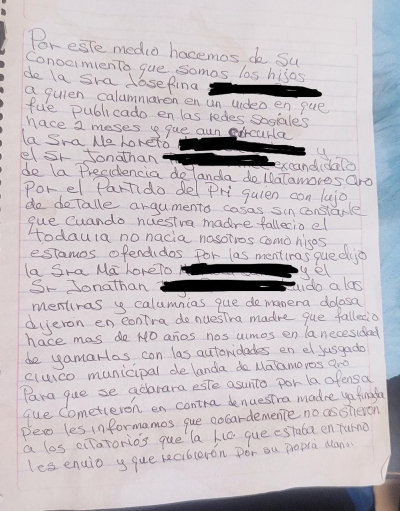 Por este medio hacemos de su
Conocimiento que somos los hijos
de la Sra Josefina
a quien calumniaron en un video en que
fue publicado en las redes sosiales
hace 2 meses y que aun circula
la Sra Ma Loreto y
el Sr Jonathan excandidato
de la Precidencia de landa de Matamoros Qro
Por el Partido del Pri quien con lujo
de detalle argumento cosas sin constarle
que cuando nuestra madre fallecio el
todauia no nacia nosotros como hijos
estamos ofendidos por las mentiras que dijo
la Sra Ma Loreto y el
Sr Jonathan uido a las
mentiras y calumnias que de manera dolosa
dijeron en contra de nuestra madre que fallecio
hace mas de 40 años nos uimos en la necesidad
de yamarlos con las autoridades en el jusgado
ciuico municipal de landa de Matamoros Qro
Para que se aclarara este asuito por la ofensa
que cometieron en contra de nuestra madre ya finada
Pero les informamos que cobardemente no asistieron
a los citatorios que la Lic. que estaba en turno
les enuio y que recibieron por su propia